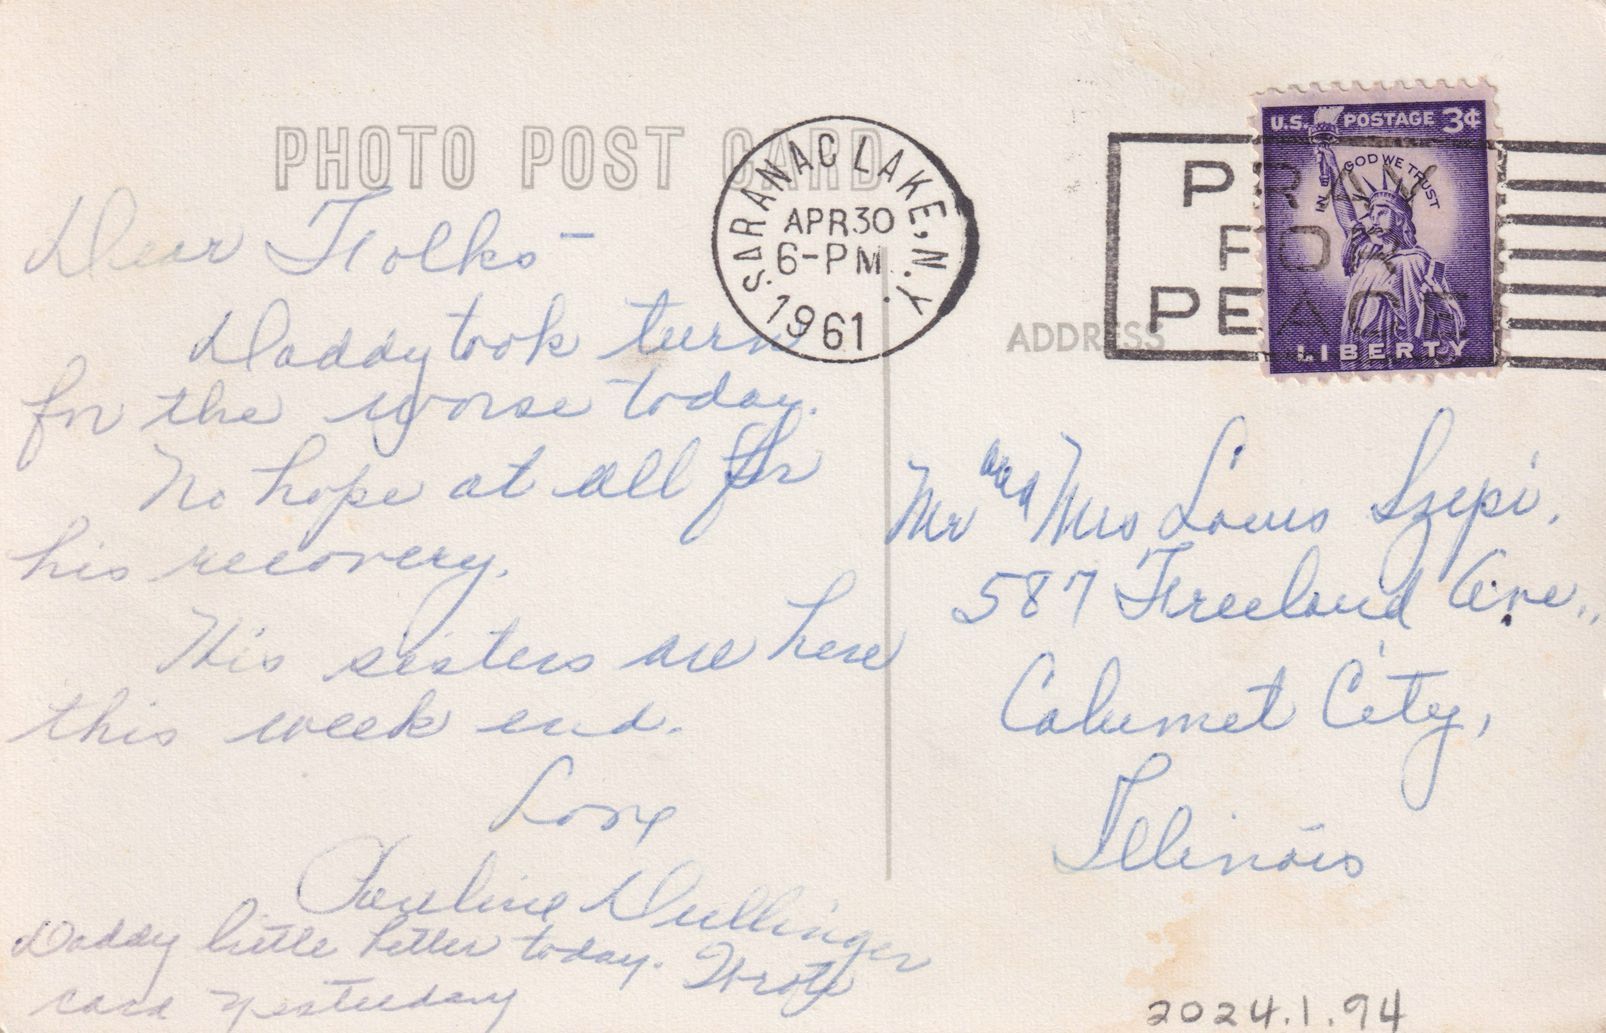 PHOTO POST CARD
Dear Folks -
Daddy took turn
for the worse today.
No hope at all for
his recovery.
His sisters are here
this week end.
Love
Pauline Dullinger
Daddy little better today. Wrote
card yesterday
SARANAC LAKE, N.Y.
APR 30
6-PM
1961
PRAY
FOR
PEACE
U.S. POSTAGE 3¢
IN GOD WE TRUST
LIBERTY
ADDRESS
Mr and Mrs Louis Szepi.
587 Freeland Ave.,
Calumet City,
Illinois
2024.1.94